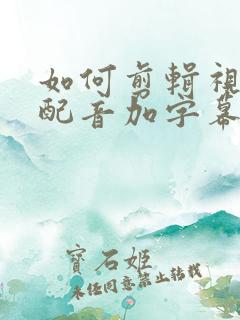 如何剪輯視
配音加字幕
寶石姬
未經同意禁止轉載